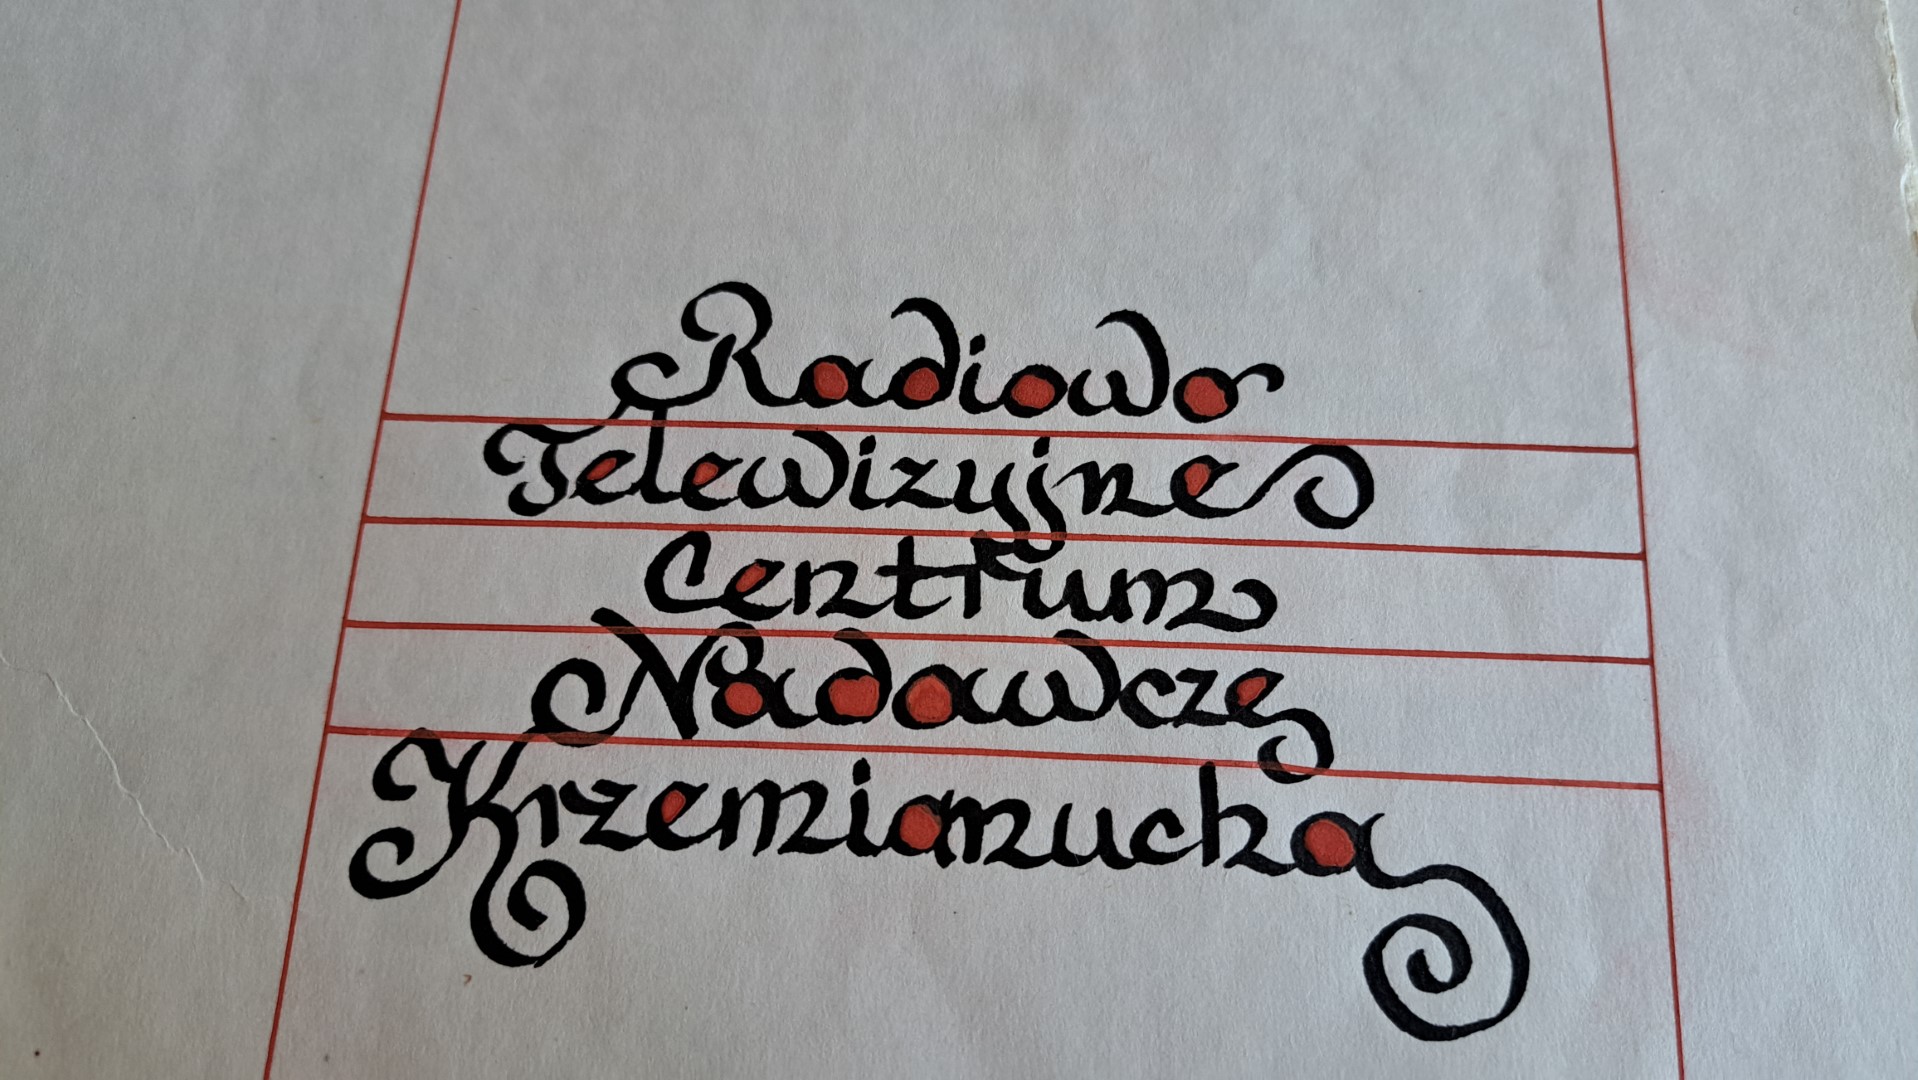 Radiowo
Telewizyjne
Centrum
Nadawcze
Krzemianucha